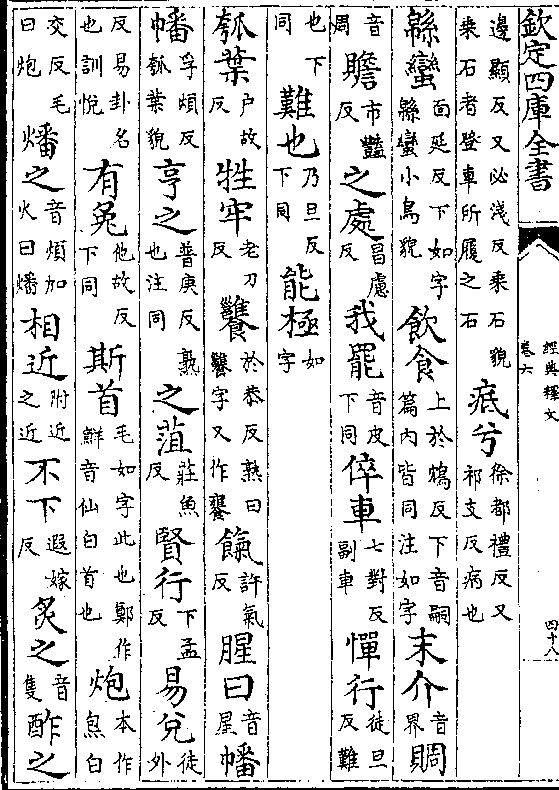 欽定四庫全書
經典釋文
卷六
四十八
邊顯反又必淺反乘石貌乘石者登車所履之石 疷兮徐都禮反又祁支反病也
緜蠻面延反下如字緜蠻小鳥貌 飲食上於鴆反下音嗣篇内皆同注如字 末介音界 賙
音周 贍市豔反 之處昌慮反 我罷音皮下同 倅車七對反副車 憚行徒旦反難
也下同 難也乃旦反下同 能極如字
瓠葉户故反 牲牢老刀反 饔於恭反熟曰饔字又作䉷 餼許氣反 腥曰音星 幡
幡孚煩反瓠葉貌 亨之普庚反熟也注同 之菹莊魚反 賢行下孟反 易兌徒外
反易卦名也訓恱 有兔他故反下同 斯首毛如字此也鄭作鮮音仙白首也 炮本作炰白
交反毛曰炮 燔之音煩加火曰燔 相近附近之近 不下遐嫁反 炙之音隻 酢之